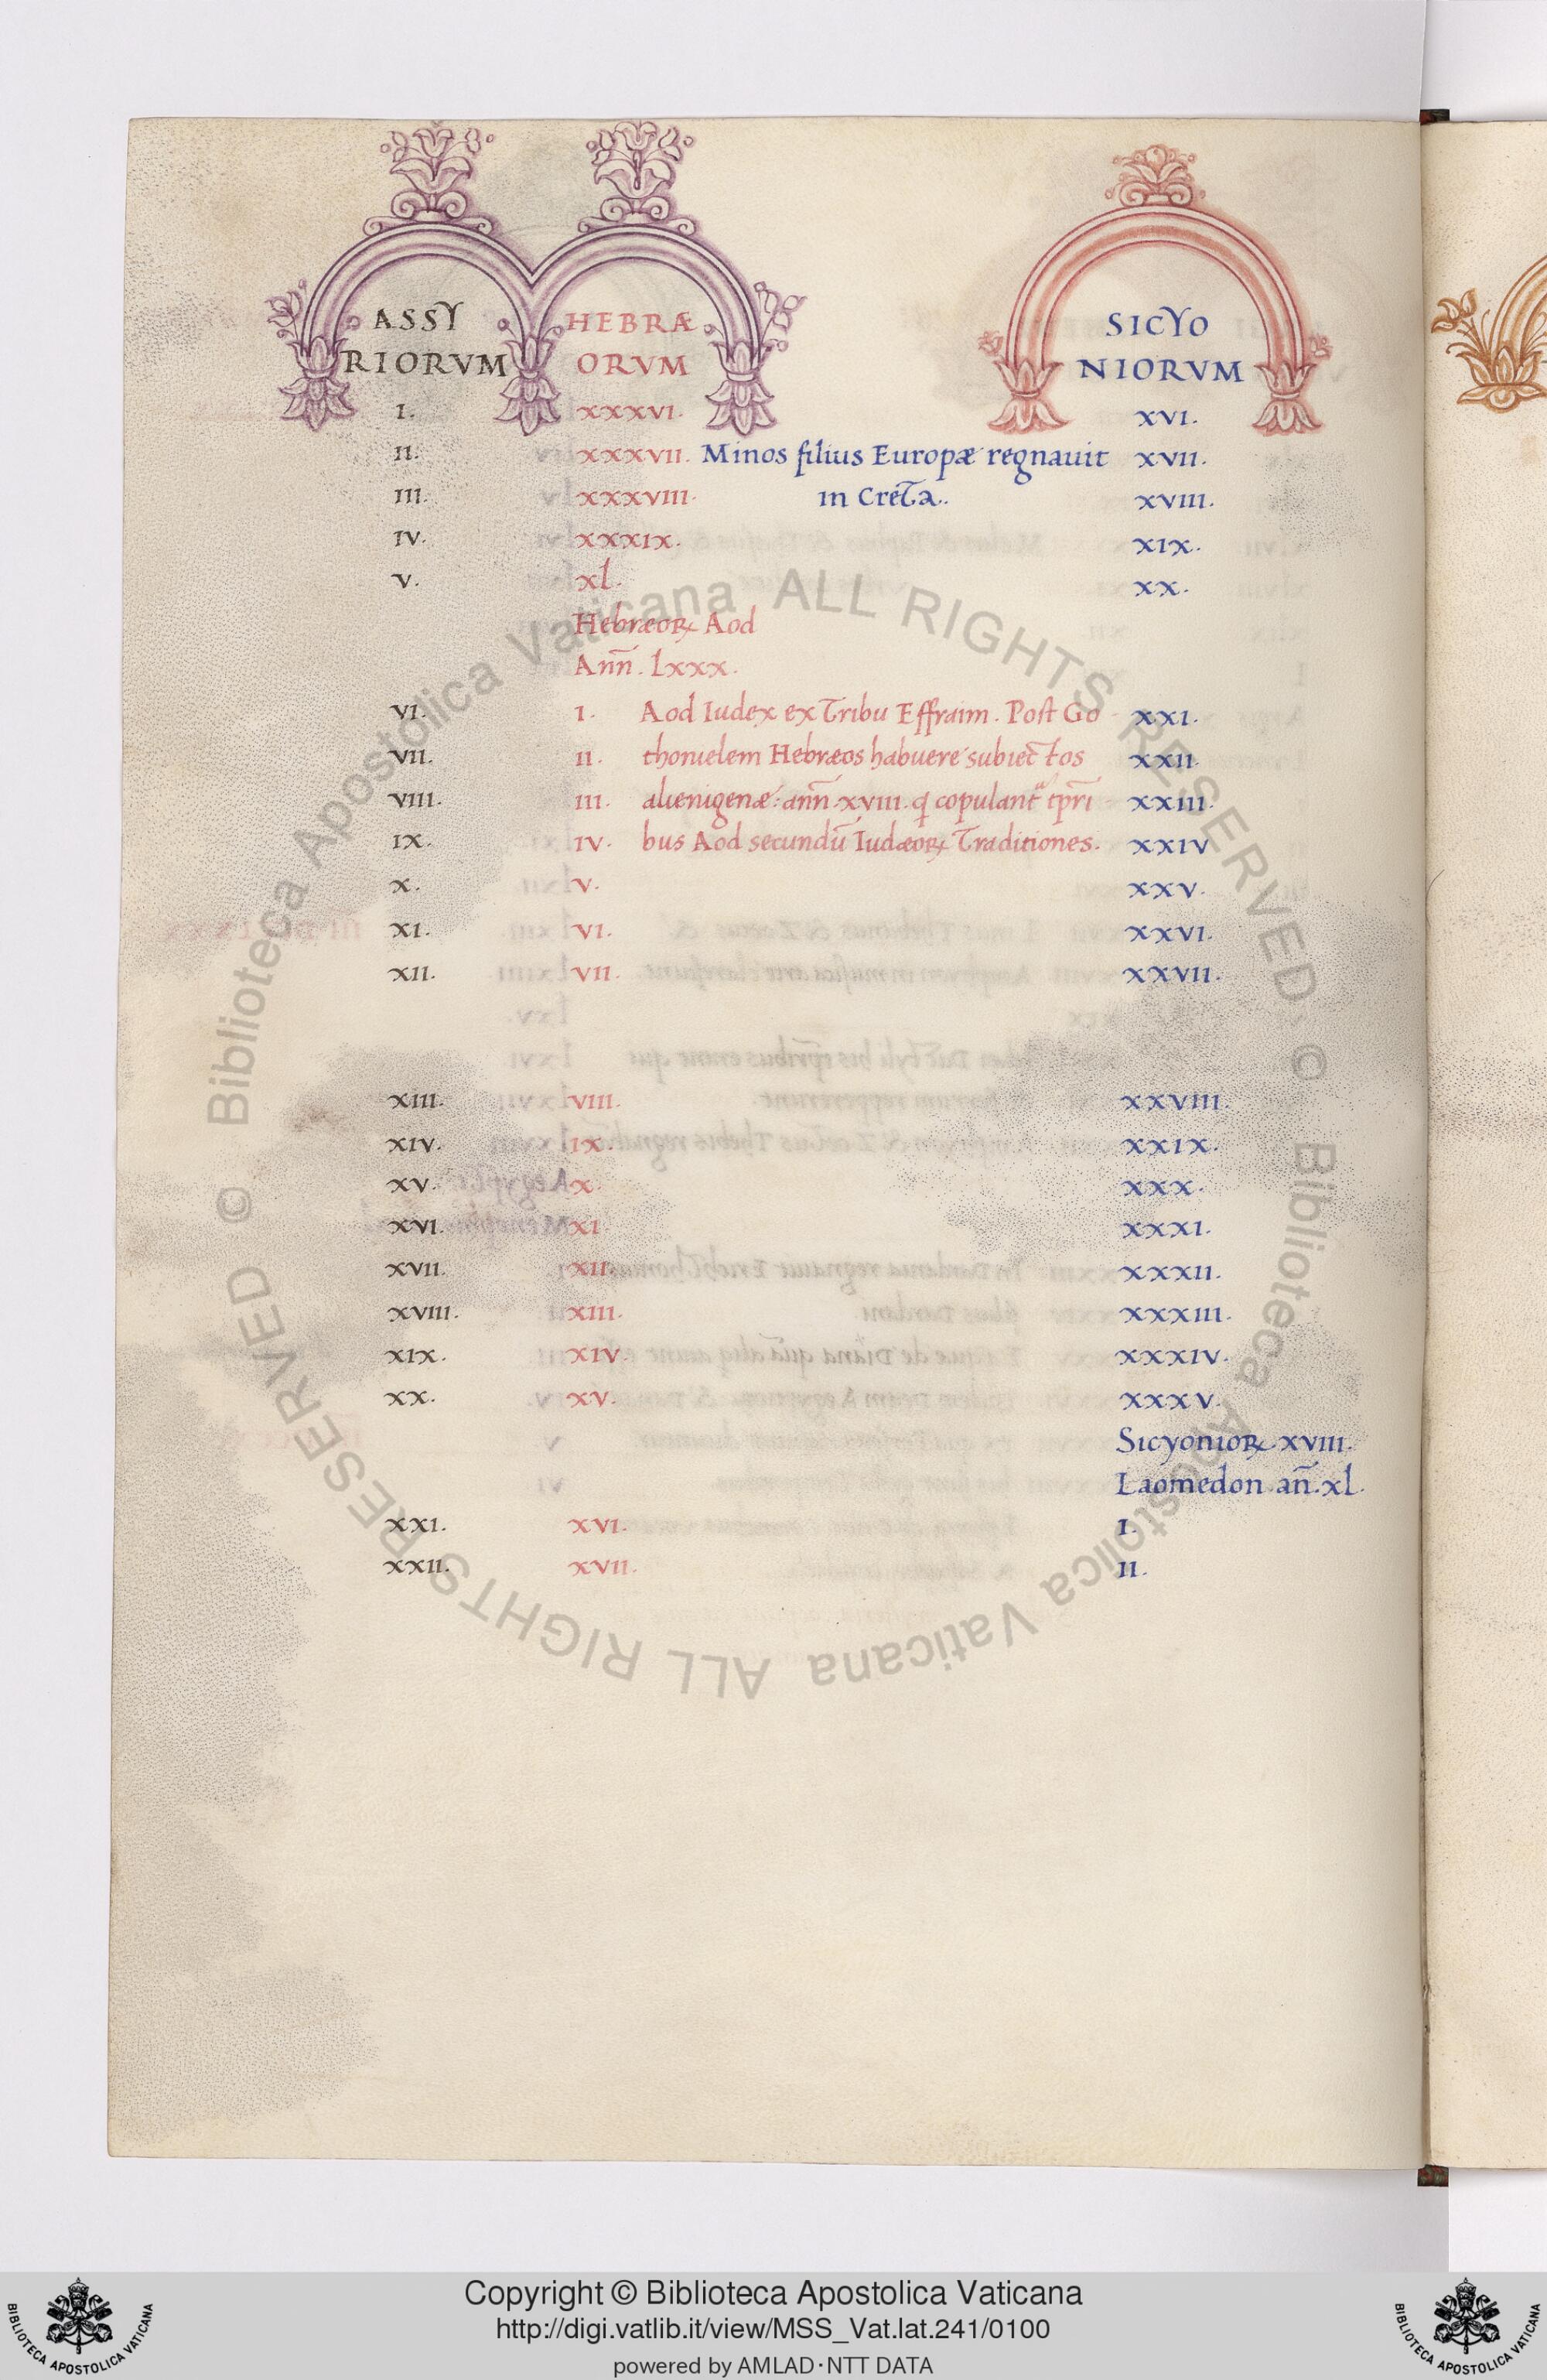 ASSY HEBRÆ SICYO
RIORVM ORVM NIORVM
I. XXXVI. XVI.
II. XXXVII. Minos filius Europæ regnauit XVII.
III. XXXVIII. in Creta. XVIII.
IV. XXXIX. XIX.
V. xl. XX.
Hebræoꝝ Aod
Ann̄. Lxxx.
VI. I. Aod Iudex ex Tribu Effraim. Post Go XXI.
VII. II. thonielem Hebræos habuere subiectos XXII.
VIII. III. alienigenæ: ann̄. xviii. q̨ copulant͛ tp̄ri XXIII.
IX. IV. bus Aod secundū Iudæoꝝ Traditiones. XXIV
X. V. XXV.
XI. VI. XXVI.
XII. VII. XXVII.
XIII. VIII. XXVIII.
XIV. IX. XXIX.
XV. X. XXX.
XVI. XI XXXI.
XVII. XII. XXXII.
XVIII. XIII. XXXIII.
XIX. XIV. XXXIV.
XX. XV. XXXV.
Sicyonioꝝ XVIII.
Laomedon an̄. xl.
XXI. XVI. I.
XXII. XVII. II.
© Biblioteca Apostolica Vaticana ALL RIGHTS RESERVED © Biblioteca Apostolica Vaticana ALL RIGHTS RESERVED
Copyright © Biblioteca Apostolica Vaticana
http://digi.vatlib.it/view/MSS_Vat.lat.241/0100
powered by AMLAD·NTT DATA
BIBLIOTECA APOSTOLICA VATICANA
BIBLIOTECA APOSTOLICA VATICANA